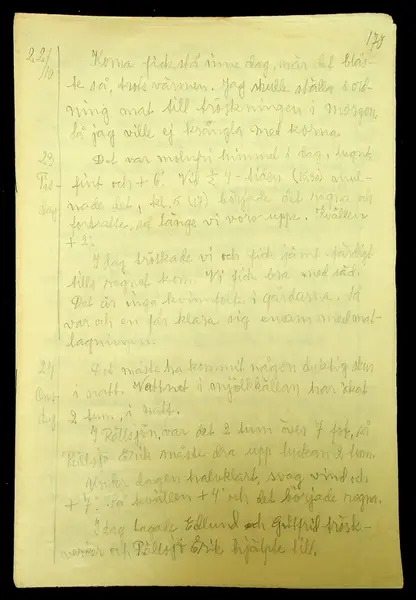 170
22/10 Korna fick stå inne dag, men det blås-
te så, trots värmen. Jag skulle ställa i ord-
ning mat till tröskningen i morgon
så jag ville ej krångla med korna.
23 Det var molnfri himmel i dag, lugnt,
Tis- fint och + 6°. Vid ½ 4-tiden mul-
dag nade det, kl. 5 (17) började det ragna och
fortsatte, så länge vi voro uppe. Kvällen
+ 2°.
I dag tröskade vi och fick jämt färdigt
tills rägnet kom. Vi fick bra med säd.
Det är inga kvinnfolk i gårdarna, så
var och en får klara sig ensam med mat-
lagningen.
24 Det måste ha kommit någon duktig skur
Ons- i natt. Vattnet i mjölkkällan har ökat
dag 2 tum, i natt.
I Pållsjön, var det 2 tum över 7 fot, så
Pållsjö Erik måste dra upp luckan 2 tum.
dagen halvklart, svag vind och
+ 7°. På kvällen + 4° och det började ragna.
I dag lagade Edlund och Gottfrid trösk-
verket och Pållsjö Erik hjälpte till.